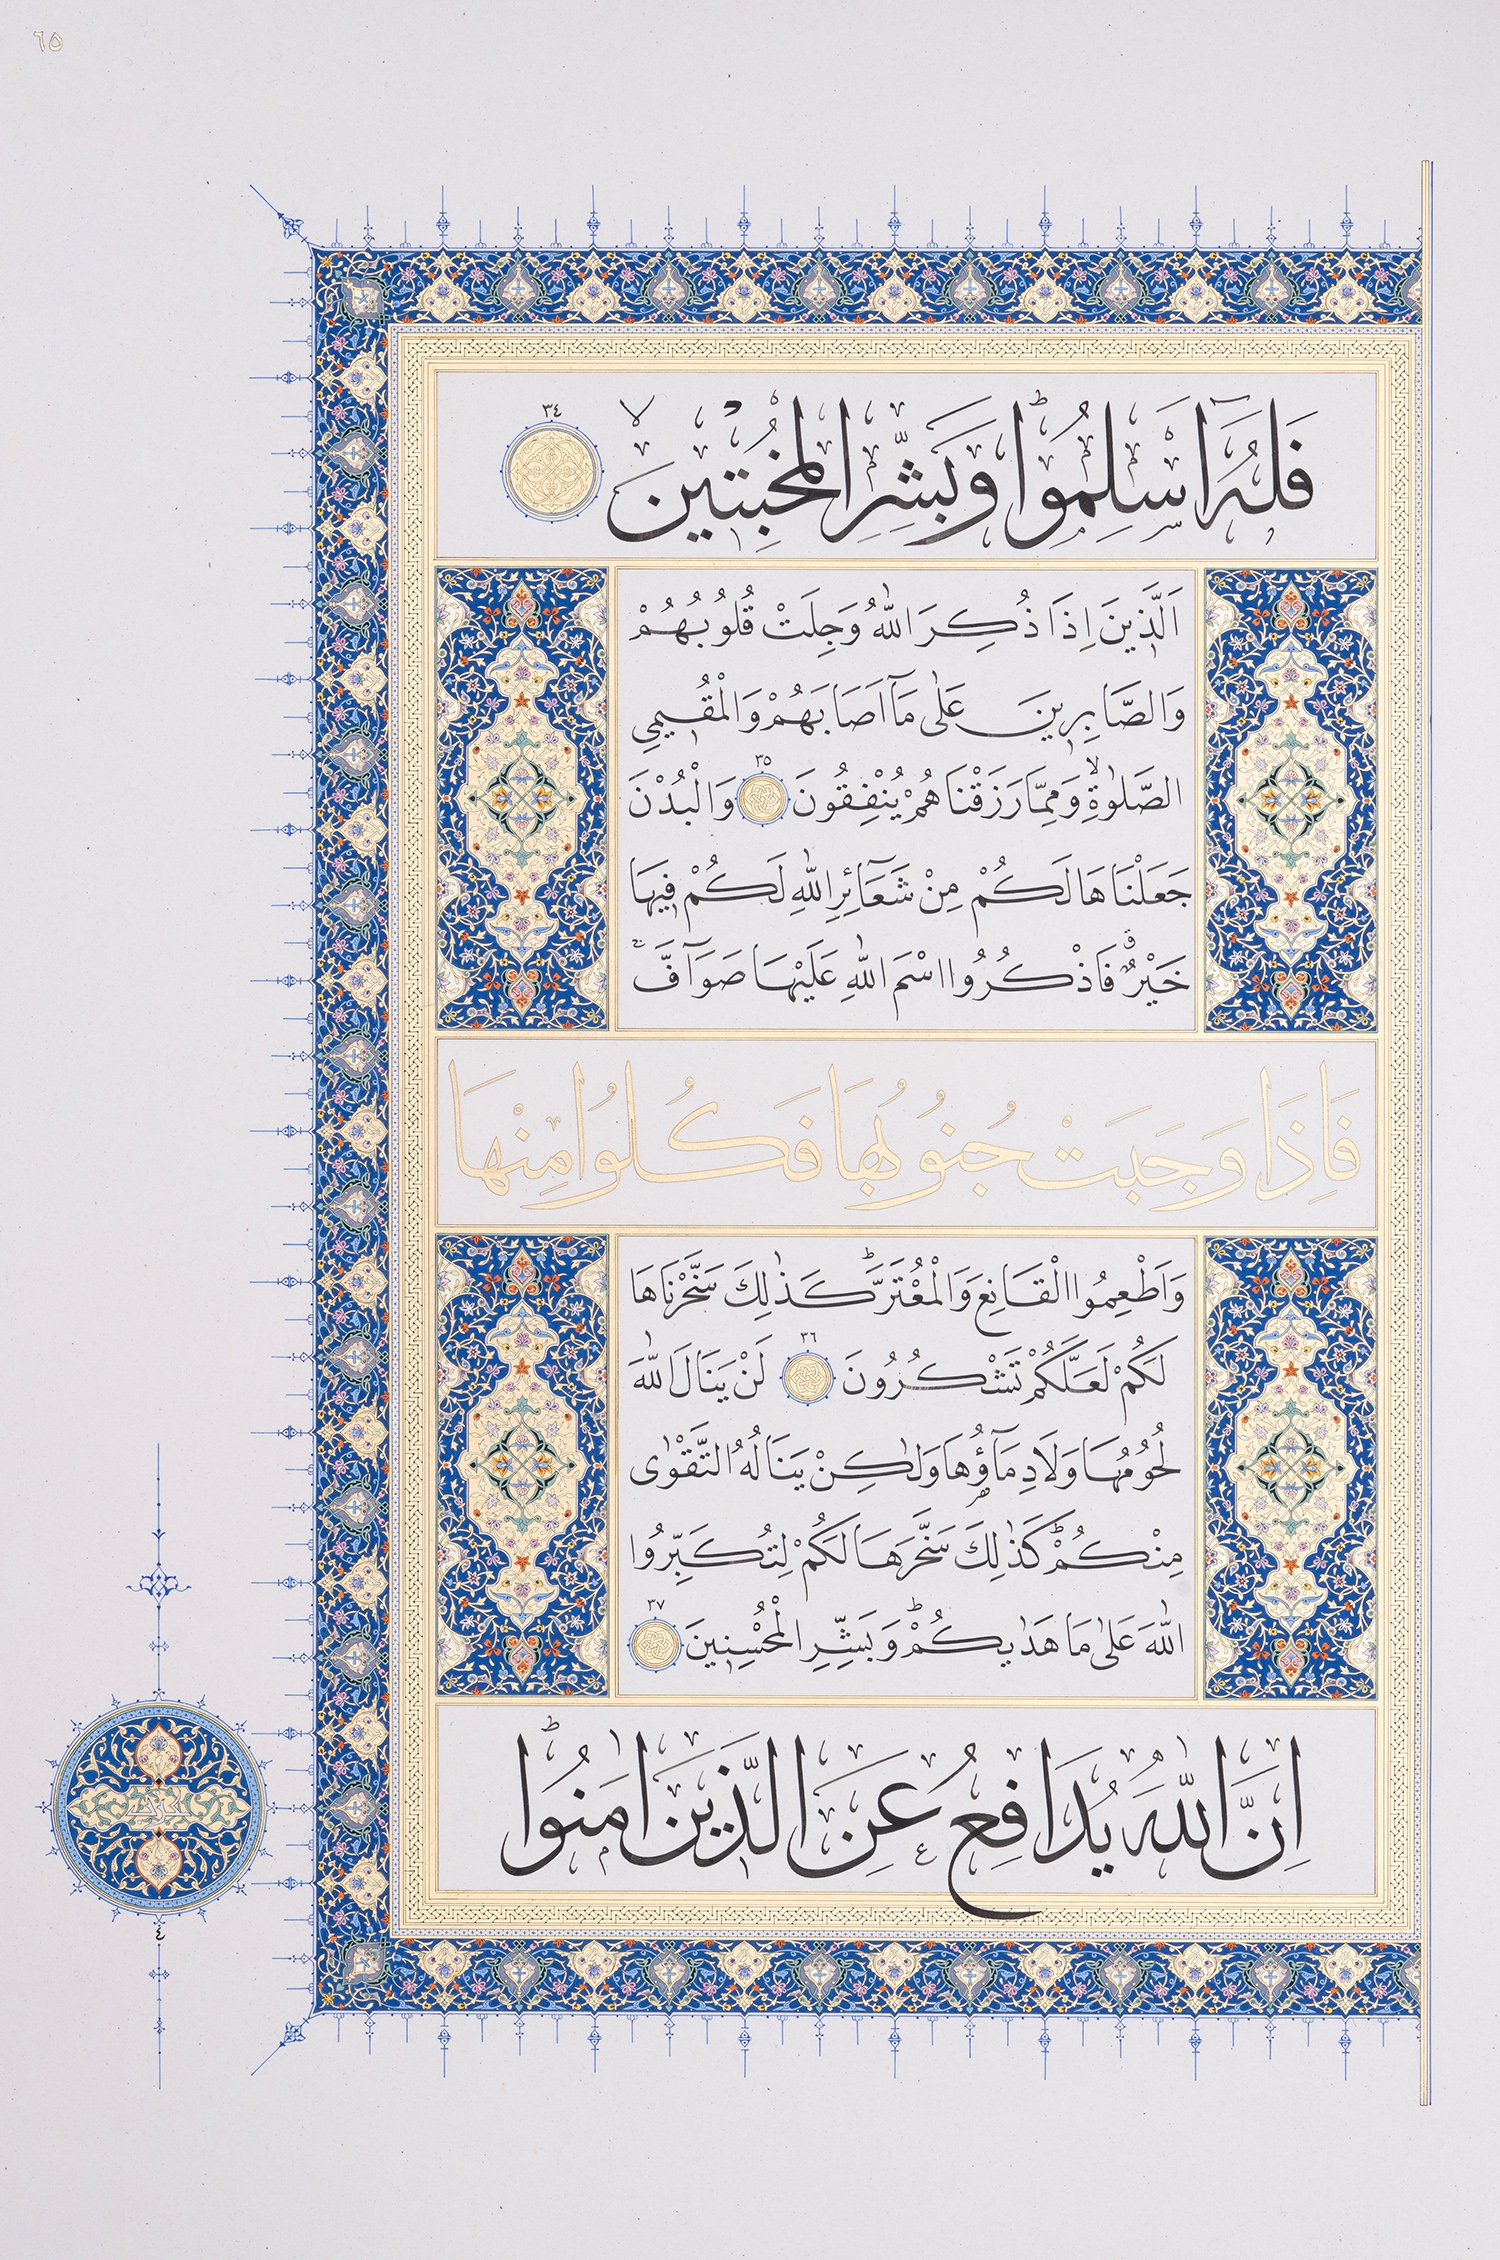 ٦٥
فَلَهُٓ اَسْلِمُواۜ وَبَشِّرِ الْمُخْبِت۪ينَۙ ٣٤
اَلَّذ۪ينَ اِذَا ذُكِرَ اللّٰهُ وَجِلَتْ قُلُوبُهُمْ
وَالصَّابِر۪ينَ عَلٰى مَٓا اَصَابَهُمْ وَالْمُق۪يمِي
الصَّلٰوةِۙ وَمِمَّا رَزَقْنَاهُمْ يُنْفِقُونَ ٣٥ وَالْبُدْنَ
جَعَلْنَاهَا لَكُمْ مِنْ شَعَٓائِرِ اللّٰهِ لَكُمْ ف۪يهَا
خَيْرٌۗ فَاذْكُرُوا اسْمَ اللّٰهِ عَلَيْهَا صَوَٓافَّۚ
فَاِذَا وَجَبَتْ جُنُوبُهَا فَكُلُوا مِنْهَا
وَاَطْعِمُوا الْقَانِعَ وَالْمُعْتَرَّۜ كَذٰلِكَ سَخَّرْنَاهَا
لَكُمْ لَعَلَّكُمْ تَشْكُرُونَ ٣٦ لَنْ يَنَالَ اللّٰهَ
لُحُومُهَا وَلَا دِمَٓاؤُ۬هَا وَلٰكِنْ يَنَالُهُ التَّقْوٰى
مِنْكُمْۜ كَذٰلِكَ سَخَّرَهَا لَكُمْ لِتُكَبِّرُوا
اللّٰهَ عَلٰى مَا هَدٰيكُمْۜ وَبَشِّرِ الْمُحْسِن۪ينَ ٣٧
اِنَّ اللّٰهَ يُدَافِعُ عَنِ الَّذ۪ينَ اٰمَنُواۜ
٤